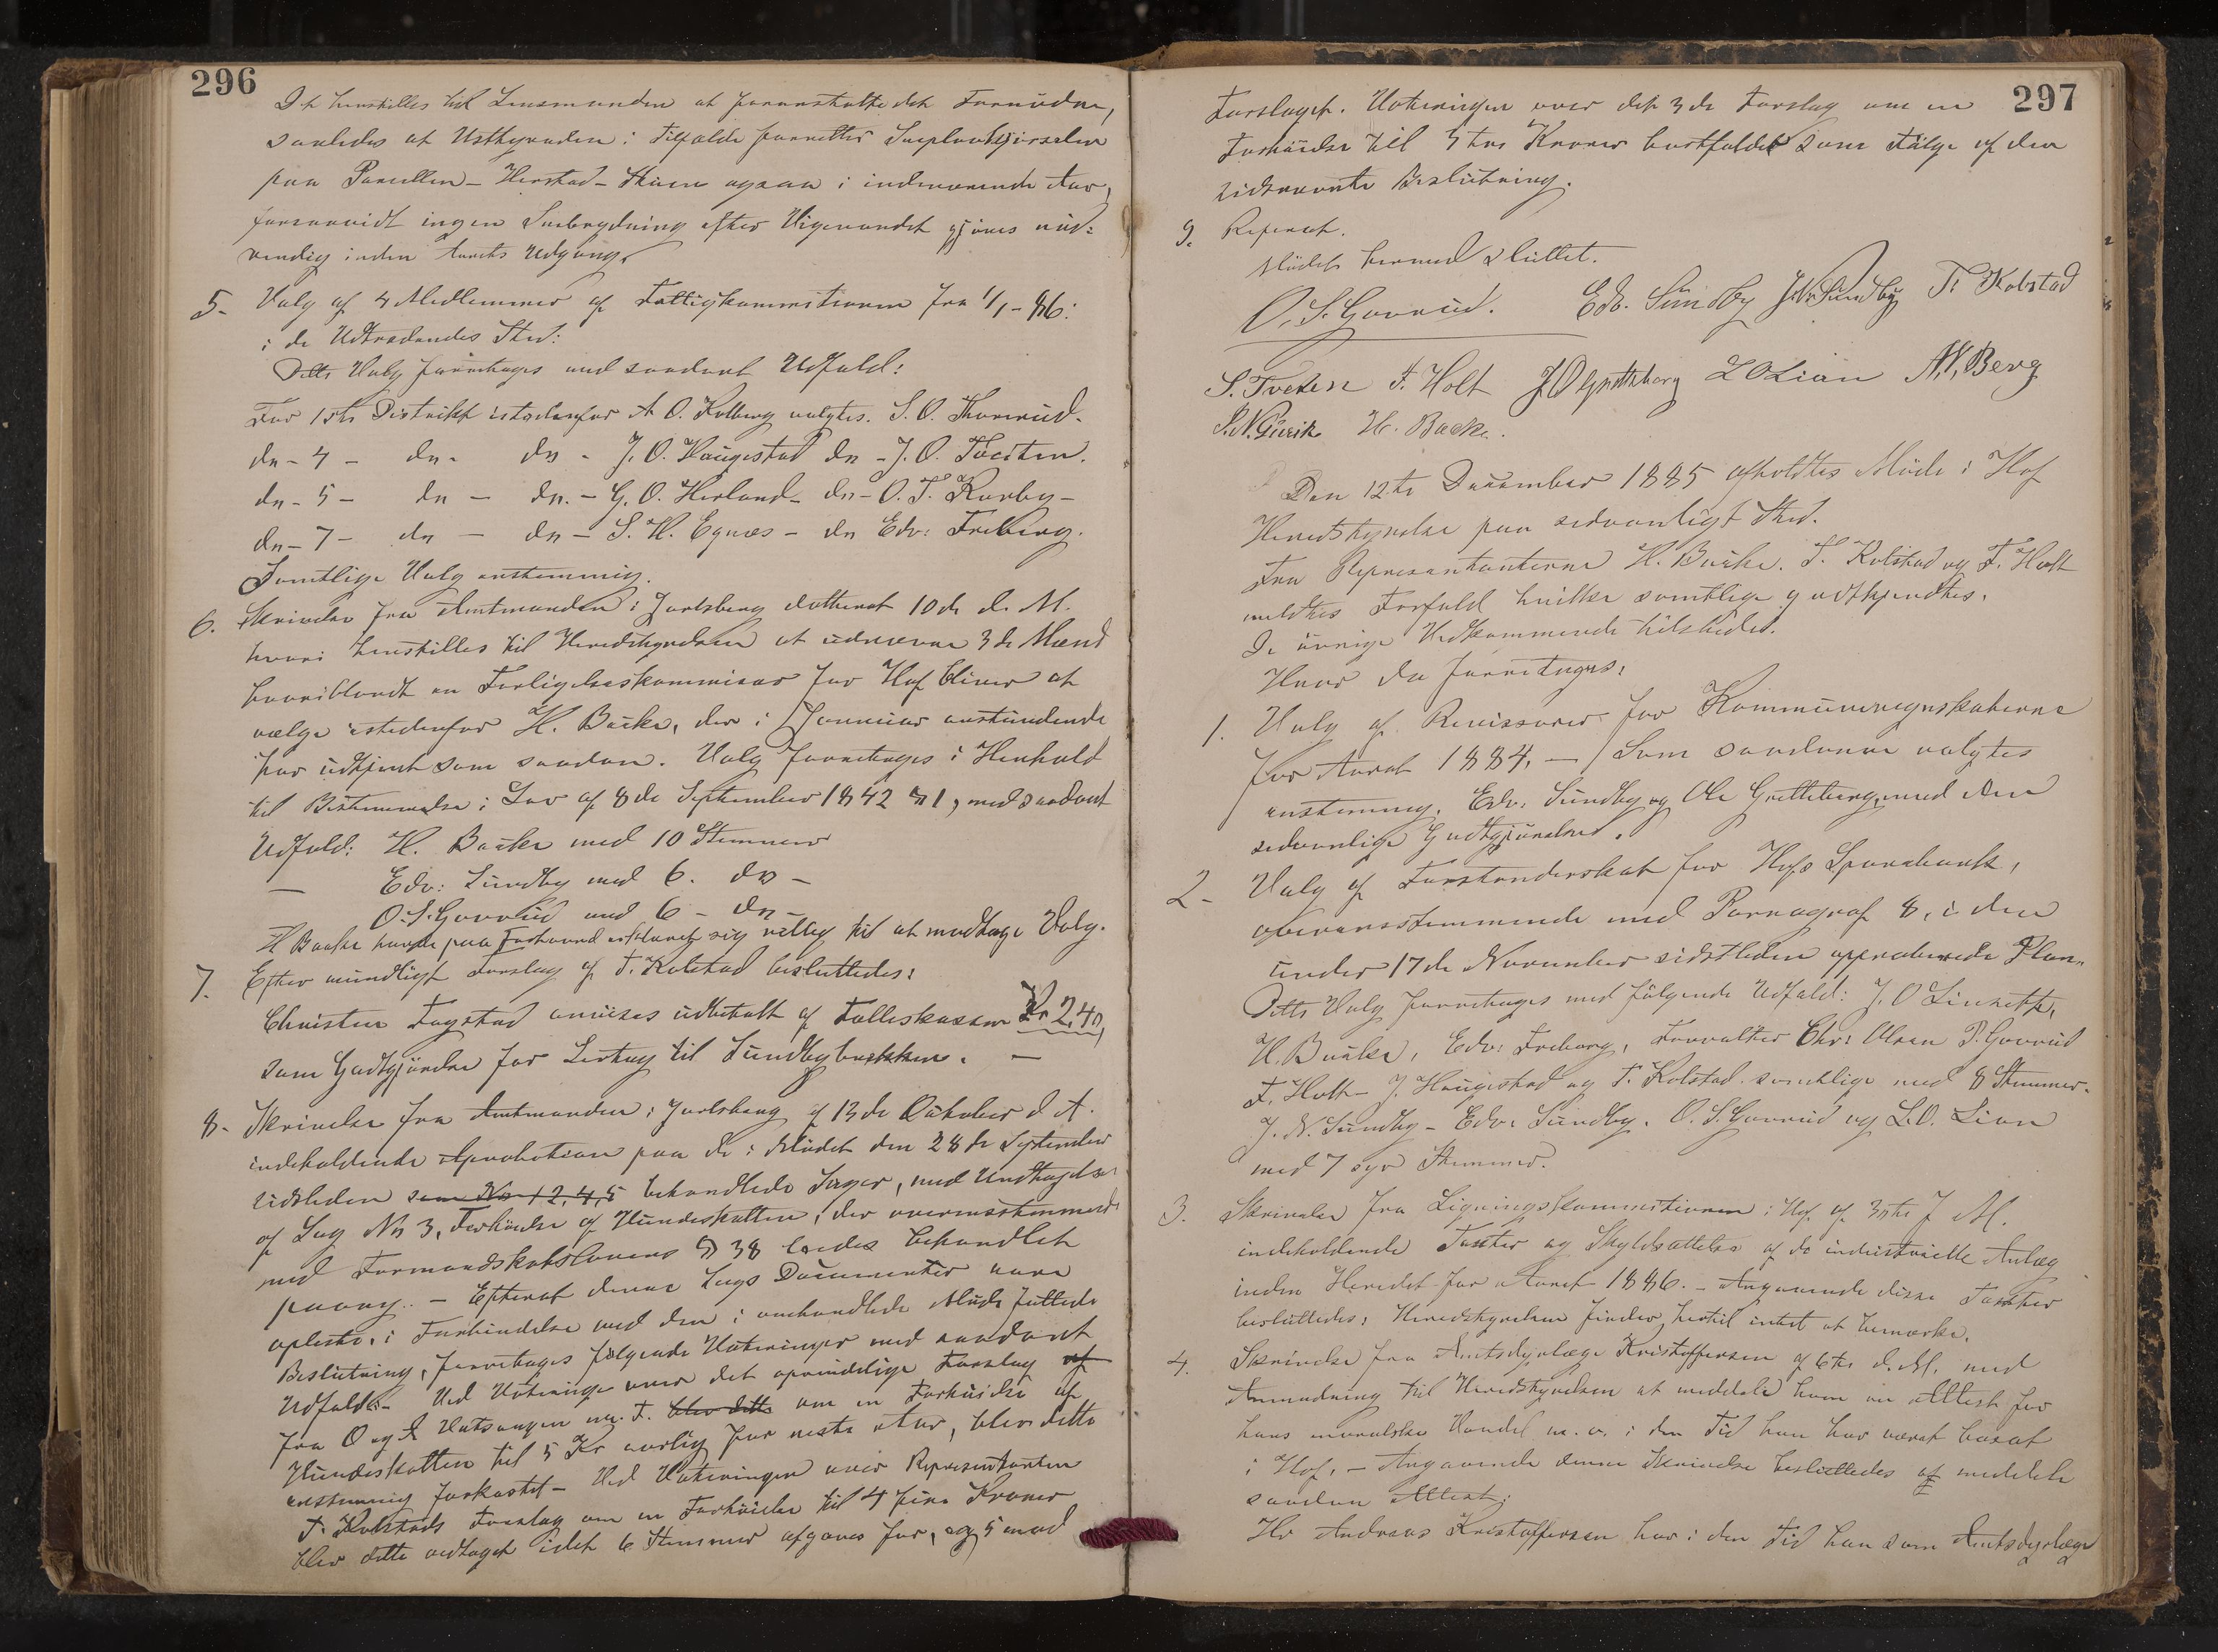 296
Det henstilles til Lensmanden at foranstalte det Fornødne,
saaledes at Udstyraden i Tilfælde forretter Sneplougkjørselen
paa Parcellen – Herstad – Skuen ogsaa i indeværende Aar,
forsaavidt ingen Snebrydning efter Vigevandet gjøres nød-
vendig inden Aarets Udgang.
5. Valg af 4 Medlemmer af Fattigkommissionen fra 1/1 – 86:
i de Udtrædendes Sted:
Dette Valg foretoges med saadant Udfald:
For 1ste Distrikt istedenfor A. O. Kolberg valgtes. S. O. Thorrud.
do – 4 – do. do – J. O. Haugestad do – J. O. Tveiten.
do – 5 – do – do. – G. O. Herland – do – O. T. Korby –
do – 7 – do – do – S. H. Egnæs – do Edv: Freberg.
Samtlige Valg enstemmig.
6. Skrivelse fra Amtmanden i Jarlsberg datteret 10de d. M.
hvori henstilles til Heredstyrelsen at udnævne 3de Mænd
hvoriblandt en Forligelseskommissær for Hof bliver at
vælge istedenfor H. Backe, der i Januar anstundende
har udtjent som saadan. Valg foretoges i Henhold
til Bestemmelse i Lov af 8de September 1842 § 1, med saadant
Udfald: H. Backe med 10 Stemmer
— Edv: Sundby med 6. do –
O. S. Gavrud med 6 – do –
H Backe havde paa Forhaand erklæret sig villig til at modtage Valg.
7. Efter mundligt Forslag af T. Kolstad besluttedes:
Christen Fogstad anvises udbetalt af Fælleskassen Kr 2,40,
som Godtgjørelse for Levtag til Sundbybakken. —
8. Skrivelse fra Amtmanden i Jarlsberg af 13de Oktober d. A.
indeholdende Aprobation paa de i Mødet den 28de September
sidstleden som No 1 2, 4, 5 behandlede Sager, med Undtagelse
af Sag No 3, Forhøielse af Hundeskatten, der overensstemmende
med Formandskabslovens § 38 bedes behandlet
paany. – Efterat denne Sags Documenter vare
oplæste, i Forbindelse med den i omhandlede Møde fattede
Beslutning, foretoges følgende Voteringer med saadant
Udfald: – Ved Votering over det oprindelige Forslag af
fra O og A Vatsaugen m. F. blev dette om en Forhøielse af
Hundeskatten til 5 Kr aarlig for neste Aar, blev dette
enstemmig forkastet – Ved Voteringen over Representanten
T. Kolstads Forslag om en Forhøielse til 4 fire Kroner
blev dette vedtaget idet 6 Stemmer afgaves for, og 5 imod
297
Forslaget. Voteringen over det 3de Forslag om en
Forhøielse til 3 tre Kroner bortfaldt som Følge af den
sidstnævnte Beslutning.
9. Referat.
Mødet hermed sluttet.
O. S. Gavrud. Edv. Sundby J. N. Sundby T. Kolstad
S. Tveten F. Holt J O Gretteberg L O Lian A. N. Berg
P. N. Gurik H. Backe.
Den 12te December 1885 afholdtes Møde i Hof
Heredstyrelse paa sedvanligt Sted.
Fra Representanterne H. Backe. T. Kolstad og F. Holt
meldtes Forfald hvilke samtlige godkjendtes.
De øvrige Vedkommende tilstede.
Hvor da foretoges:
1. Valg af Revisorer for Kommuneregnskaberne
for Aaret 1884. – Som saadanne valgtes
enstemmig. Edv. Sundby og Ole Grettebergmed den
sedvanlige Godtgjørelse.
2 – Valg af Forstanderskab for Hofs Sparebank,
overensstemmende med Parragraf 8, i den
under 17de November sidstleden approberede Plan.
Dette Valg foretoges med følgende Udfald: J. O Linnestad,
H. Backe, Edv: Freberg, Forvalter Chr: Olsen P. Gavrud
F. Holt – J. Haugestad og T. Kolstad samtlige med 8 Stemmer.
J. N. Sundby – Edv: Sundby. O. S. Gavrud og L. O. Lian
med 7 syv Stemmer.
3. Skrivelse fra Ligningskommissionen i Hof af 30te f M.
indeholdende Taxter og Skyldsættelse af de industrielle Anlæg
inden Heredet for Aaret 1886. – Angaaende disse Taxter
besluttedes: Heredstyrelsen finder hertil intet at bemærke.
4. Skrivelse fra Amtsdyrlæge Kristoffersen af 6te d. M. med
Anmodning til Heredstyrelsen at meddele ham en Attest for
hans moralske Vandel m. v. i den Tid han har været bosat
i Hof. – Angaaende denne Skrivelse besluttedes at meddele
saadan Attest:
Hr Andreas Kristoffersen har i den Tid han som Amtsdyrlæge